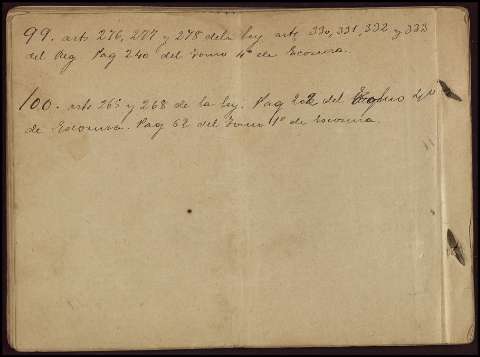 99. arts 276, 277 y 278 de la Ley arts 330, 331, 332 y 333
del Reg Pag 240 del Tomo 4º de Escosura.
100. arts 265 y 268 de la Ley. Pag 202 del
de Escosura. Pag 62 del Tomo 1º de Escosura.